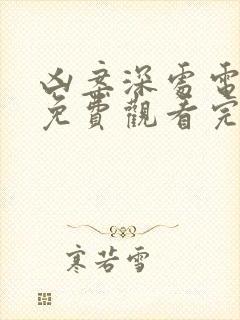 凶案深處電
免費觀看完
寒若雪